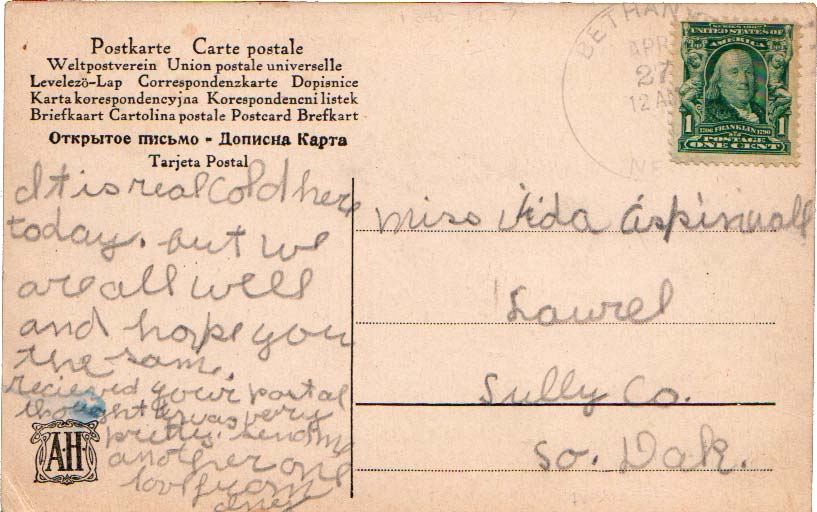 Postkarte Carte postale
Weltpostverein Union postale universelle
Levelezö-Lap Correspondenzkarte Dopisnice
Karta korespondencyjna Korespondencni listek
Briefkaart Cartolina postale Postcard Brefkart
Открытое письмо - Дописна Карта
Tarjeta Postal
It is real Cold here
today. but we
are all well
and hope you
the same.
recieved your postal
thought it was very
pretty. send me
another one
love from
A·H
BETHANY
APR
27
12 AM
SERIES 1902
UNITED STATES OF
AMERICA
1 1
1706 FRANKLIN 1790
POSTAGE
ONE CENT
Miss Vida Aspinwall
Laurel
Sully Co.
So. Dak.